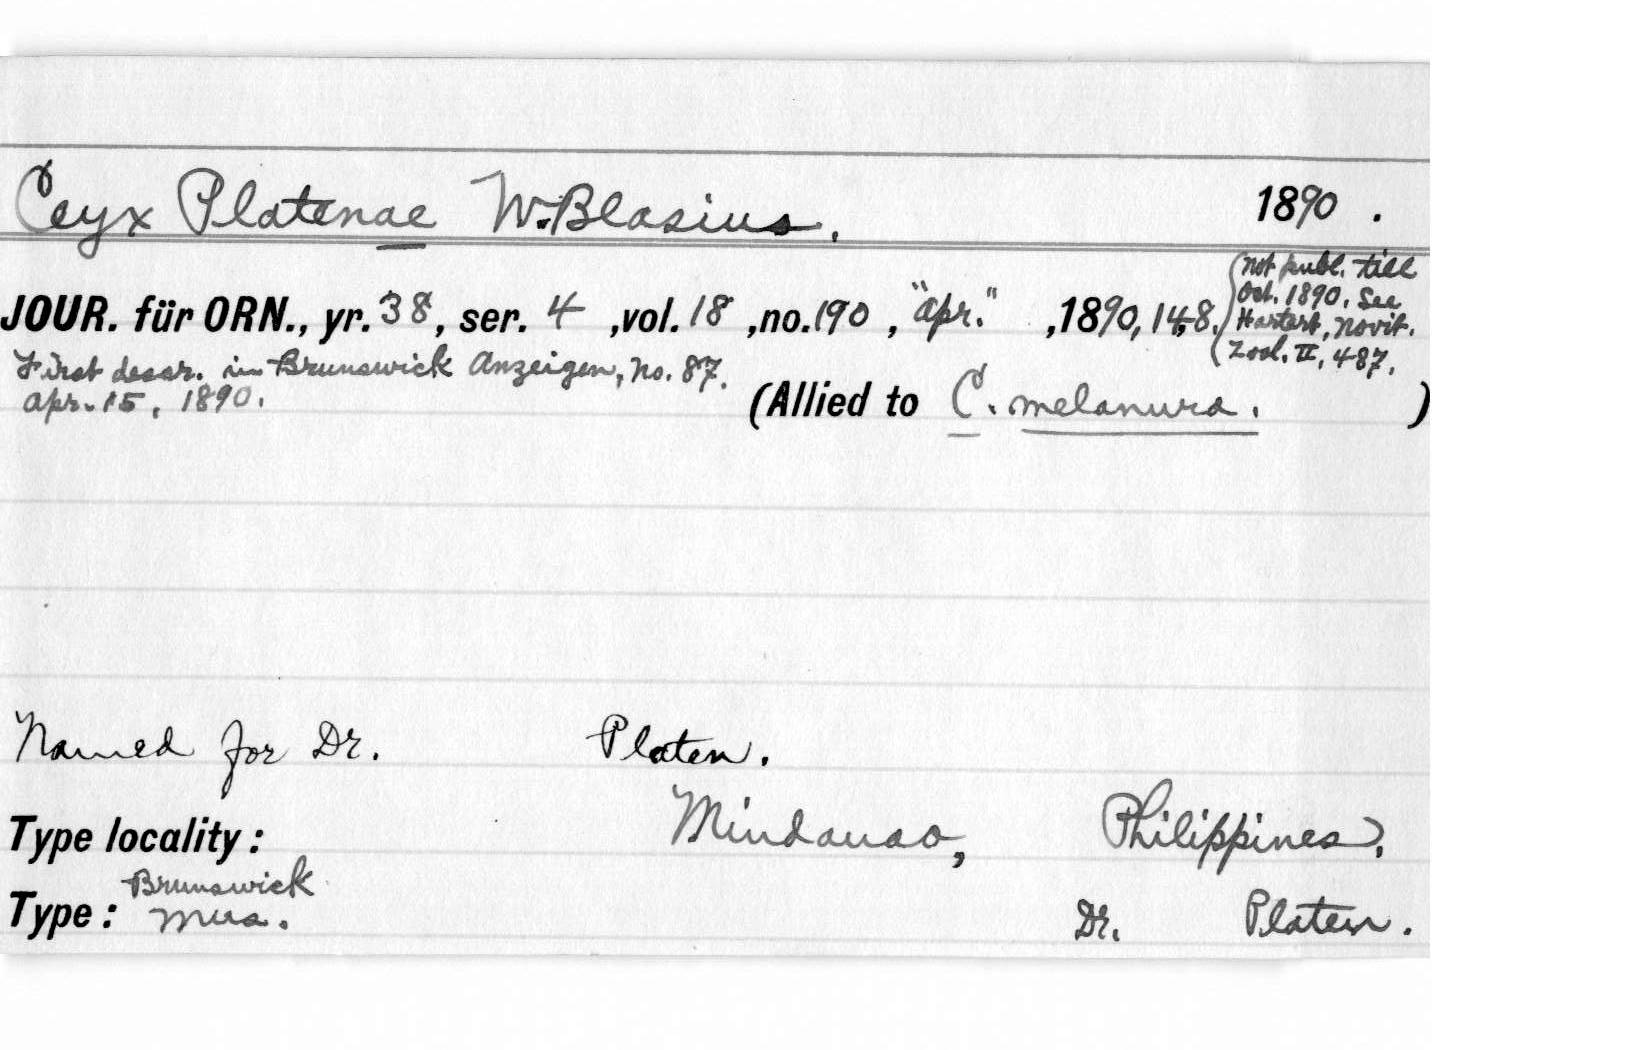 Ceyx Platenae W. Blasius. 1890.
JOUR. für ORN., yr. 38, ser. 4, vol. 18, no. 190, "Apr.", 1890, 148.
(Not publ. till
Oct. 1890. See
Hartert, Novit.
Zool. II, 487.
First descr. in Brunswick Anzeigen, No. 87.
Apr. 15, 1890.
(Allied to C. melanura.)
Named for Dr. Platen.
Type locality: Mindanao, Philippines.
Type: Brunswick
Mus. Dr. Platen.